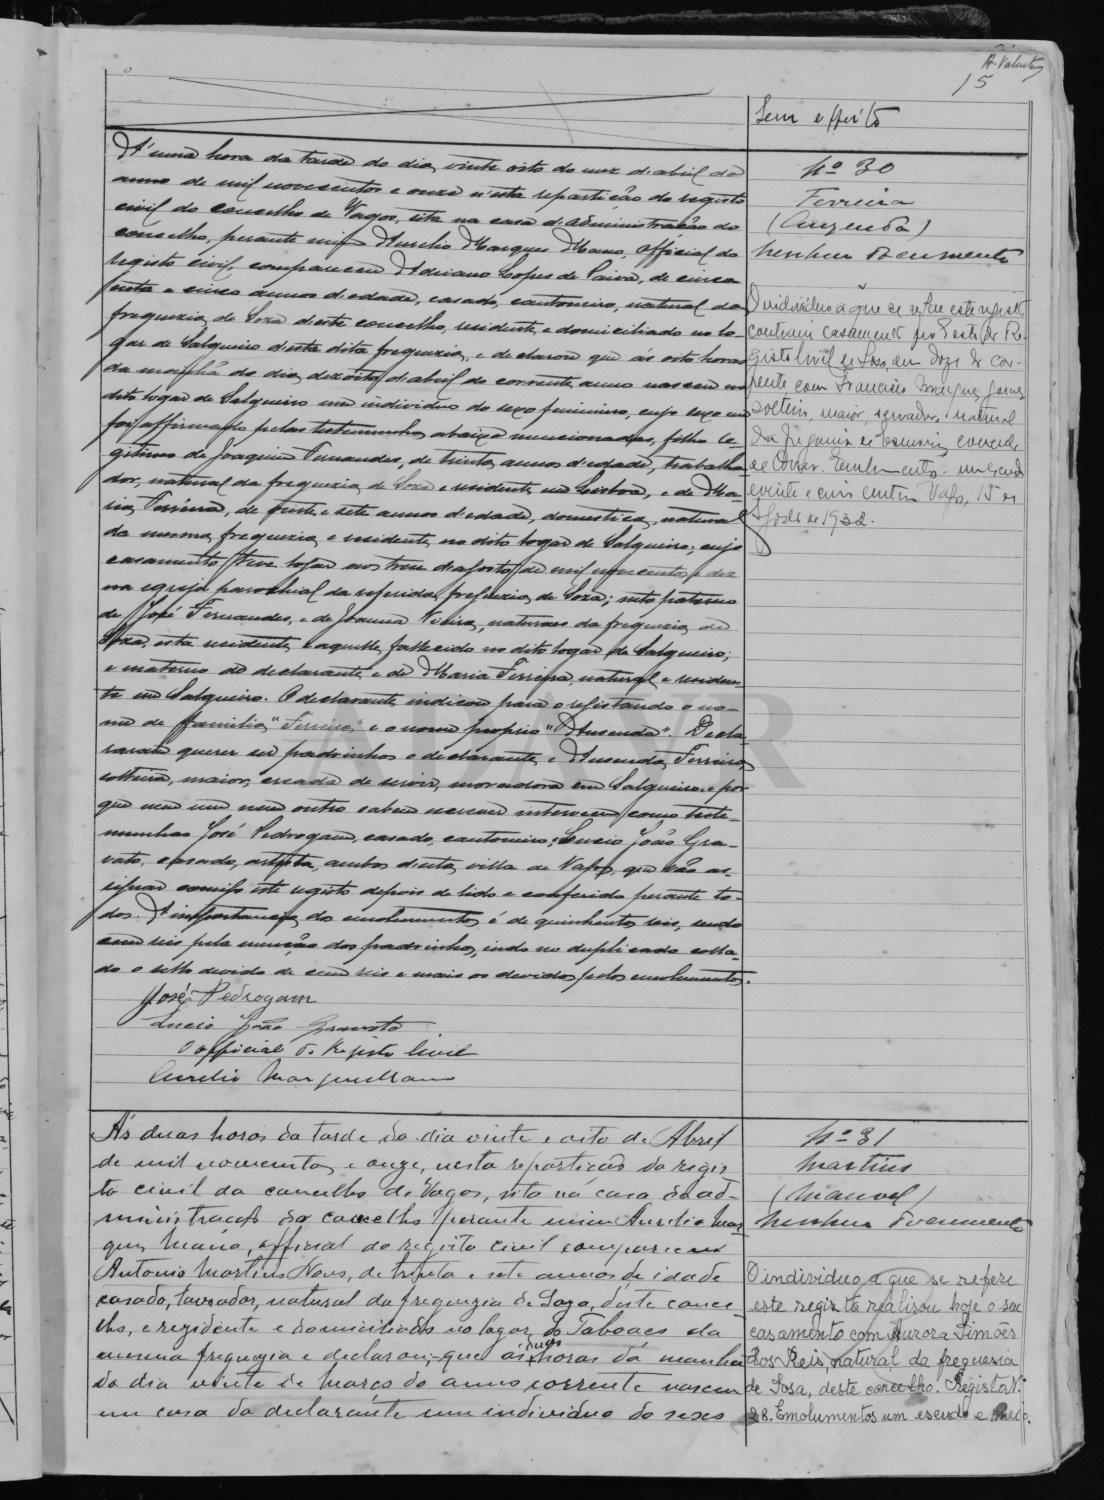 A. Valente
15
Sem effeito
Á uma hora da tarde do dia vinte oito do mez d'abril do
anno de mil novecentos e onze n'esta repartição do registo
civil do concelho de Vagos, sita na casa d'administração do
concelho, perante mim Aurelio Marques Mano, official do
registo civil, compareceu Adriano Lopes de Paiva, de cinco
enta e cinco annos d'edade, casado, cantoneiro, natural da
freguezia de Soza d'este concelho, residente e domiciliado no lo-
gar de Salgueiro d'esta dita freguezia, e declarou que ás oito horas
da manhã do dia dezoito d'abril do corrente anno nasceu no
dito logar de Salgueiro um individuo do sexo feminino, cujo sexo me
foi affirmado pelas testemunhas abaixo mencionadas, filho le-
gitimo de Joaquim Fernandes, de trinta annos d'edade, trabalha-
dor, natural da freguezia de Soza e residente em Lisboa, e de Ma-
ria Ferreira, de vinte e sete annos d'edade, domestica, natural
da mesma freguezia e residente no dito logar de Salgueiro; cujo
casamento teve logar aos treze d'agosto de mil novecentos e dez
na egreja parochial da referida freguezia de Soza; neto paterno
de José Fernandes, e de Joanna Vieira, naturaes da freguezia de
Soza, esta residente e aquelle fallecido no dito logar de Salgueiro;
e materno do declarante e de Maria Ferreira, natural e residen-
te em Salgueiro. O declarante indicou para o registando o no-
me de familia "Ferreira" e o nome proprio "Auzenda". Decla-
raram querer ser padrinhos o declarante e Auzenda Ferreira,
solteira, maior, creada de servir, moradora em Salgueiro e por
que nem um nem outro sabem escrever intervieram como teste-
munhas José Pedrogam, casado, cantoneiro, e Lucio João Gra-
vato, casado, artista, ambos d'esta villa de Vagos, que vão as-
signar comigo este registo depois de lido e conferido perante to-
dos. A importancia dos emolumentos é de quinhentos reis, sendo
cem reis pela menção dos padrinhos, indo no duplicado colla-
do o sello devido de cem reis e mais os devidos pelos emolumentos.
José Pedrogam
Lucio João Gravato
O official do Registo Civil
Aurelio Marques Mano
Nº 30
Ferreira
(Auzenda)
Nenhum documento
O individuo a que se refere este registo
contraiu casamento no Posto do Re-
gisto Civil de Sosa, em doze do cor-
rente, com Francisco
solteiro, maior, serrador, natural
da freguesia de concelho
de Ovar. Emolumento um escudo
e vinte e cinco centavos. Vagos, 15 de
de 1932.
Ás duas horas da tarde do dia vinte e oito de Abril
de mil novecentos e onze, nesta repartição do regis
to civil do concelho de Vagos, sita na casa da ad-
ministração do concelho, perante mim Aurelio Mar
ques Mano, official do registo civil compareceu
Antonio Martins Novo, de trinta e sete annos de idade
casado, lavrador, natural da freguezia de Soza, d'este conce
lho, e rezidente e domiciliado no logar do Taboaes da
mesma freguezia e declarou, que ás onze horas da manhã
do dia vinte de Março do anno corrente nasceu
em casa do declarante um individuo do sexo
Nº 31
Martins
(Manoel)
Nenhum documento
O individuo, a que se refere
este registo realizou hoje o seu
casamento com Aurora Simões
dos Reis, natural da freguesia
de Sosa, deste concelho. Registo Nº
28. Emolumentos um escudo e meio.